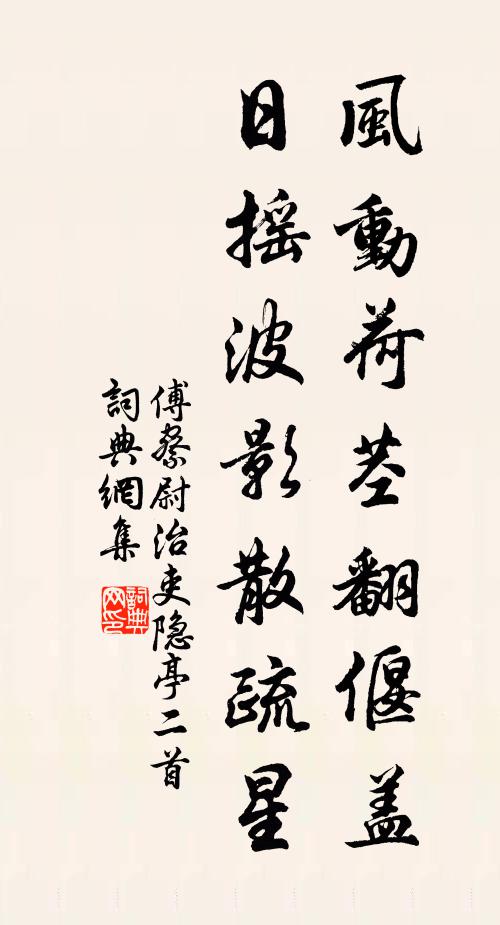 風動荷茎翻偃盖
日摇波影散疏星
傅察尉治吏隐亭二首
詞典網集
詞典
网印